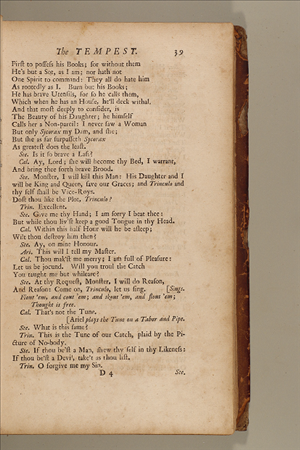 The TEMPEST. 39
First to possess his Books; for without them
He's but a Sot, as I am; nor hath not
One Spirit to command: They all do hate him
As rootedly as I. Burn but his Books;
He has brave Utensils, for so he calls them,
Which when he has an House, he'll deck withal.
And that most deeply to consider, is
The Beauty of his Daughter; he himself
Calls her a Non-pareil: I never saw a Woman
But only Sycorax my Dam, and she;
But she as far surpasseth Sycorax
As greatest does the least.
Ste. Is it so brave a Lass?
Cal. Ay, Lord; she will become thy Bed, I warrant,
And bring thee forth brave Brood.
Ste. Monster, I will kill this Man: His Daughter and I
will be King and Queen, save our Graces; and Trinculo and
thy self shall be Vice-Roys.
Dost thou like the Plot, Trinculo?
Trin. Excellent.
Ste. Give me thy Hand; I am sorry I beat thee:
But while thou liv'st keep a good Tongue in thy Head.
Cal. Within this half Hour will he be asleep;
Wilt thou destroy him then?
Ste. Ay, on mine Honour.
Ari. This will I tell my Master.
Cal. Thou mak'st me merry; I am full of Pleasure:
Let us be jocund. Will you troul the Catch
You taught me but whileare?
Ste. At thy Request, Monster, I will do Reason,
And Reason: Come on, Trinculo, let us sing. [Sings.
Flout 'em, and cout 'em; and skout 'em, and flout 'em;
Thought is free.
Cal. That's not the Tune.
[Ariel plays the Tune on a Tabor and Pipe.
Ste. What is this same?
Trin. This is the Tune of our Catch, plaid by the Pi-
cture of No-body.
Ste. If thou be'st a Man, shew thy self in thy Likeness:
If thou be'st a Devil, take't as thou list.
Trin. O forgive me my Sins.
D 4 Ste.